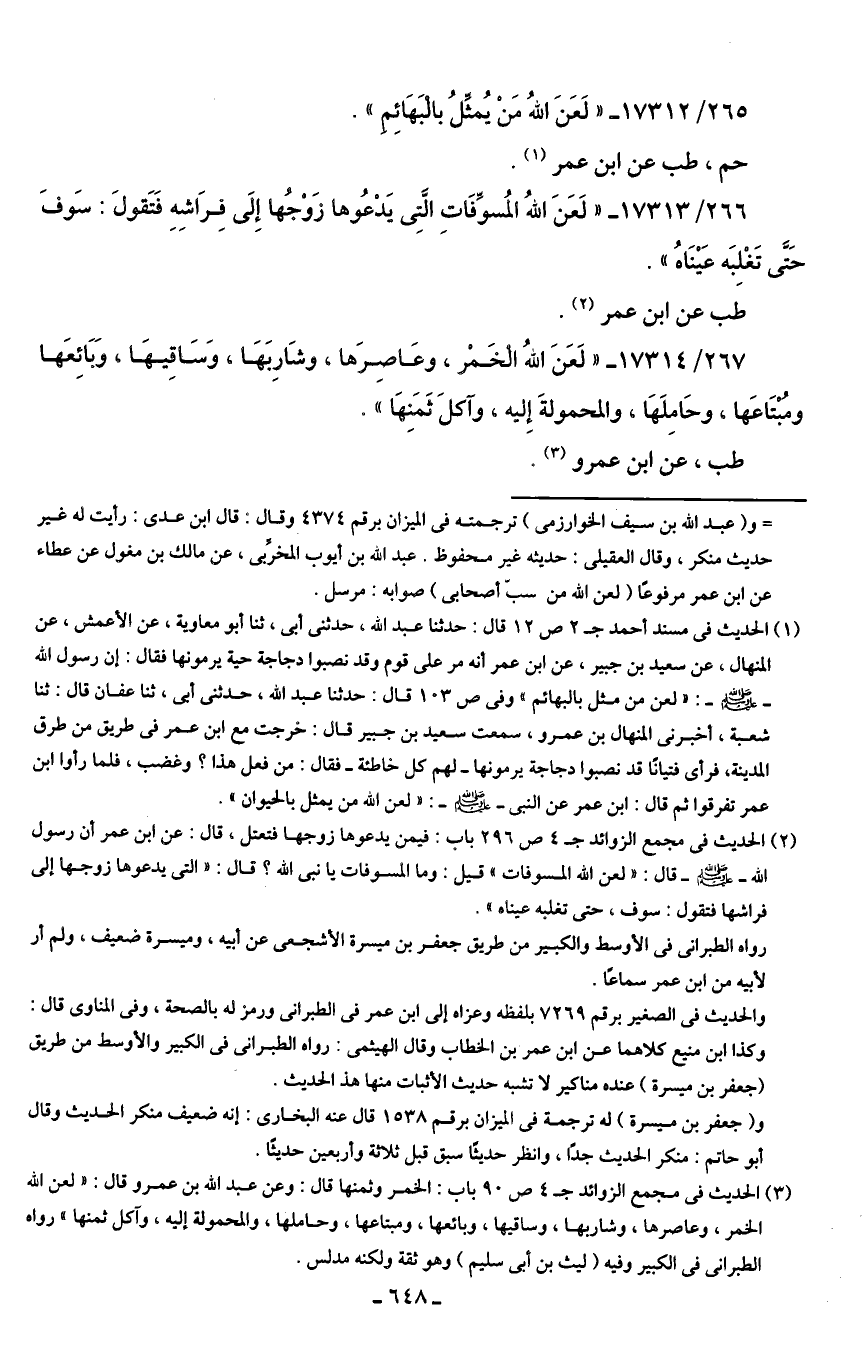 ٢٦٥/ ١٧٣١٢ـ « لَعَنَ اللهُ مَنْ يُمثِّلُ بالْبَهَائِمِ » .
حم ، طب عن ابن عمر (١) .
٢٦٦/ ١٧٣١٣ـ « لَعَنَ اللهُ المُسوِّفَاتِ الَّتِى يَدْعُوها زَوْجُها إِلَى فِرَاشِهِ فَتَقولَ : سَوفَ
حَتَّى تَغْلِبَه عَيْنَاهُ » .
طب عن ابن عمر (٢) .
٢٦٧/ ١٧٣١٤ـ « لَعَنَ اللهُ الْخَمْر ، وعَاصِرَها ، وشَارِبَهَا ، وَسَاقِيهَا ، وَبَائِعَهَا
ومُبْتَاعَها ، وحَامِلَهَا ، والمحمولةَ إِليه ، وآكلَ ثَمَنِهَا » .
طب ، عن ابن عمرو (٣) .
= و( عبد الله بن سيف الخوارزمى ) ترجمته فى الميزان برقم ٤٣٧٤ وقال : قال ابن عدى : رأيت له غير
حديث منكر ، وقال العقيلى : حديثه غير محفوظ . عبد الله بن أيوب المخرِّبى ، عن مالك بن مغول عن عطاء
عن ابن عمر مرفوعًا ( لعن الله من سبّ أصحابى ) صوابه : مرسل .
(١) الحديث فى مسند أحمد جـ ٢ ص ١٢ قال : حدثنا عبد الله ، حدثنى أبى ، ثنا أبو معاوية ، عن الأعمش ، عن
المنهال ، عن سعيد بن جبير ، عن ابن عمر أنه مر على قوم وقد نصبوا دجاجة حية يرمونها فقال : إن رسول الله
ـ ﷺ ـ : « لعن من مثل بالبهائم » وفى ص ١٠٣ قال : حدثنا عبد الله ، حدثنى أبى ، ثنا عفان قال : ثنا
شعبة ، أخبرنى المنهال بن عمرو ، سمعت سعيد بن جبير قال : خرجت مع ابن عمر فى طريق من طرق
المدينة، فرأى فتيانًا قد نصبوا دجاجة يرمونها ـ لهم كل خاطئة ـ فقال : من فعل هذا ؟ وغضب ، فلما رأوا ابن
عمر تفرقوا ثم قال : ابن عمر عن النبى ـ ﷺ ـ : « لعن الله من يمثل بالحيوان » .
(٢) الحديث فى مجمع الزوائد جـ ٤ ص ٢٩٦ باب : فيمن يدعوها زوجها فتعتل ، قال : عن ابن عمر أن رسول
الله ـ ﷺ ـ قال : « لعن الله المسوفات » قيل : وما المسوفات يا نبى الله ؟ قال : « التى يدعوها زوجها إلى
فراشها فتقول : سوف ، حتى تغلبه عيناه » .
رواه الطبرانى فى الأوسط والكبير من طريق جعفر بن ميسرة الأشجعى عن أبيه ، وميسرة ضعيف ، ولم أر
لأبيه من ابن عمر سماعًا .
والحديث فى الصغير برقم ٧٢٦٩ بلفظه وعزاه إلى ابن عمر فى الطبرانى ورمز له بالصحة ، وفى المناوى قال :
وكذا ابن منيع كلاهما عن ابن عمر بن الخطاب وقال الهيثمى : رواه الطبرانى فى الكبير والأوسط من طريق
(جعفر بن ميسرة ) عنده مناكير لا تشبه حديث الأثبات منها هذ الحديث .
و( جعفر بن ميسرة ) له ترجمة فى الميزان برقم ١٥٣٨ قال عنه البخارى : إنه ضعيف منكر الحديث وقال
أبو حاتم : منكر الحديث جدًا ، وانظر حديثًا سبق قبل ثلاثة وأربعين حديثًا .
(٣) الحديث فى مجمع الزوائد جـ ٤ ص ٩٠ باب : الخمر وثمنها قال : وعن عبد الله بن عمرو قال : « لعن الله
الخمر ، وعاصرها ، وشاربها ، وساقيها ، وبائعها ، ومبتاعها ، وحاملها ، والمحمولة إليه ، وآكل ثمنها » رواه
الطبرانى فى الكبير وفيه ( ليث بن أبى سليم ) وهو ثقة ولكنه مدلس .
ـ ٦٤٨ ـ